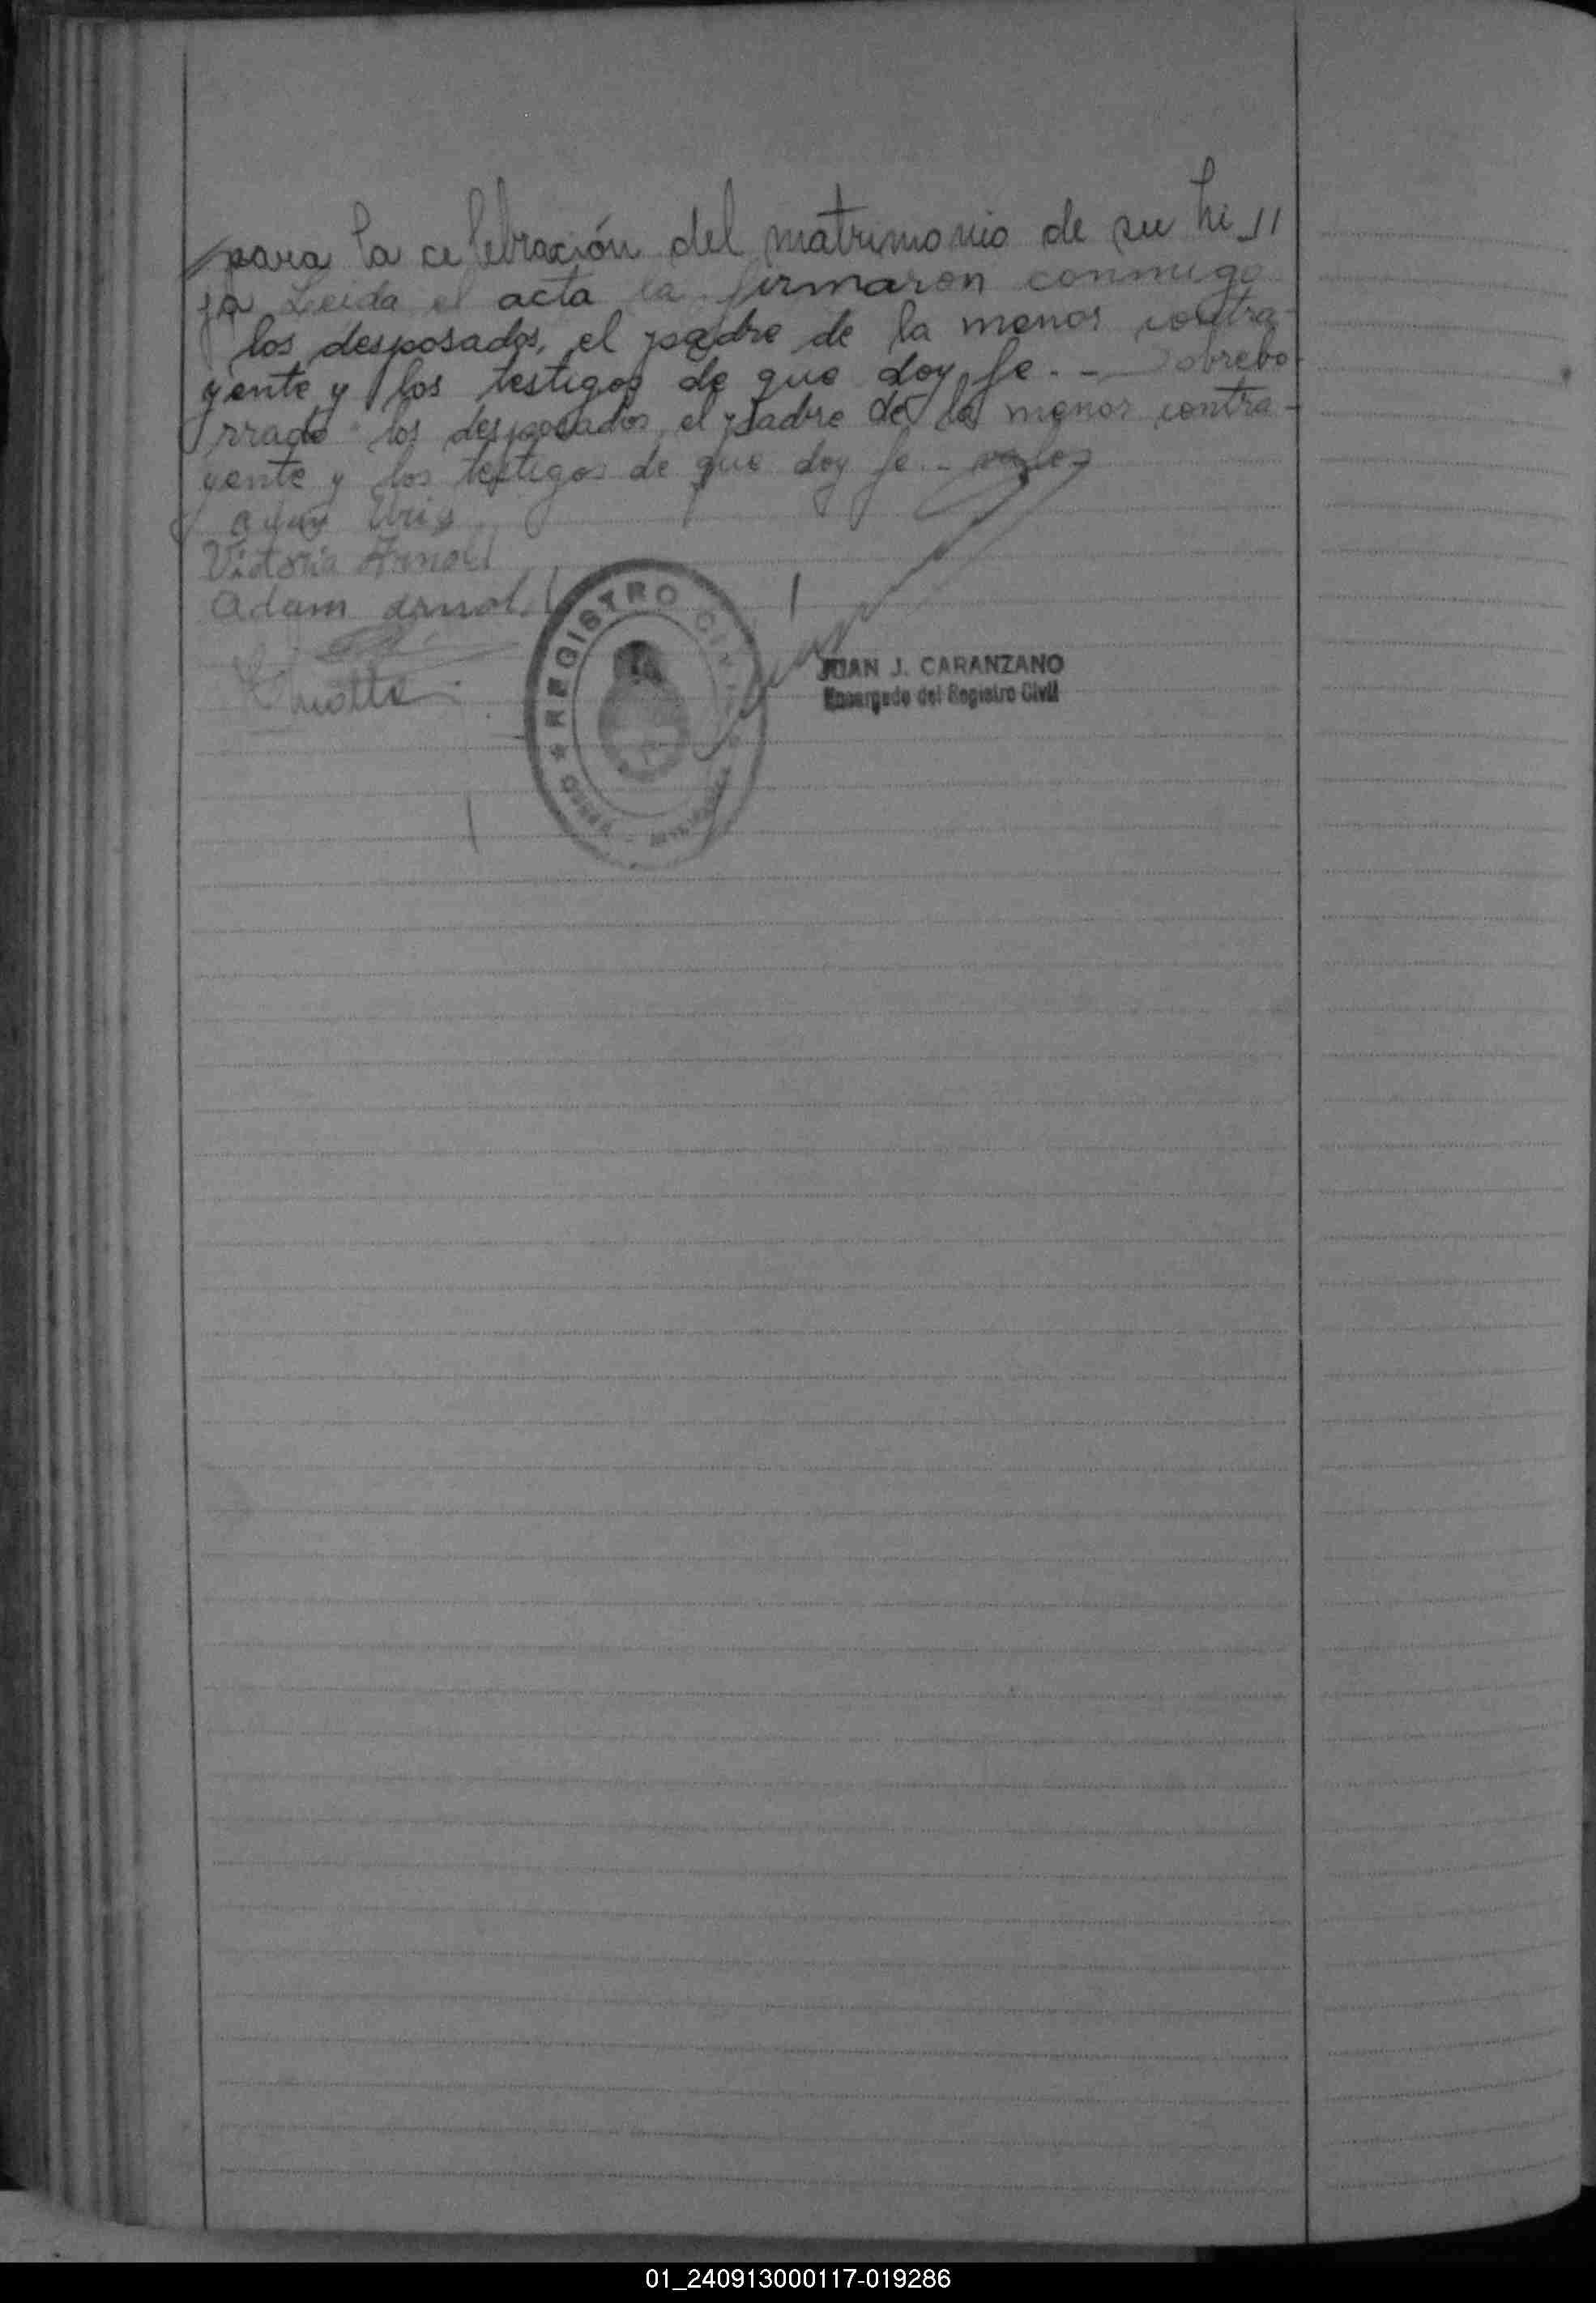 para la celebración del matrimonio de su hi_//
ja Leida el acta la firmaron conmigo
los desposados, el padre de la menor contra-
yente y los testigos de que doy fe. - Sobrebo-
rrado "los desposados, el padre de la menor contra-
yente y los testigos de que doy fe. - vale
Victoria Arnold
Adam Arnold
REGISTRO CIVIL
JUAN J. CARANZANO
Encargado del Registro Civil
01_240913000117-019286